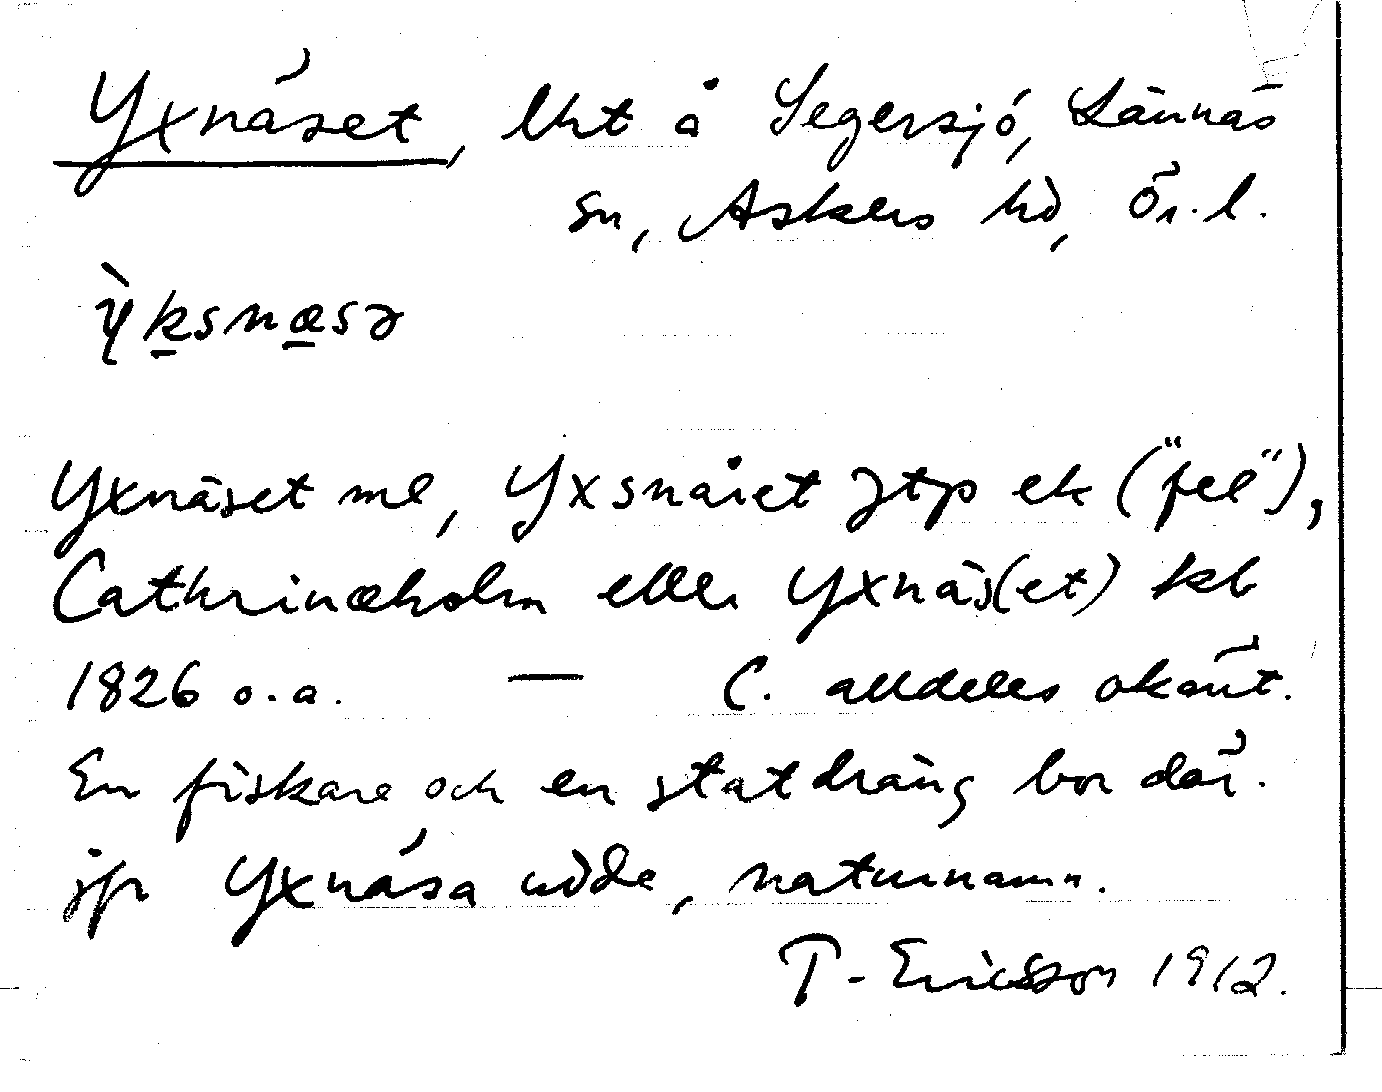 Yxnäset, lht å Segersjö, Lännäs
sn, Askers hd, Ör. l.
ỳksnæsə
Yxnäset ml, Yxsnäset jtp ek ("fel"),
Cathrinæholm eller Yxnäs(et) kb
1826 o.a. — C. alldeles okänt.
En fiskare och en statdräng bor där.
jfr Yxnäsa udde, naturnamn.
T. Ericsson 1912.